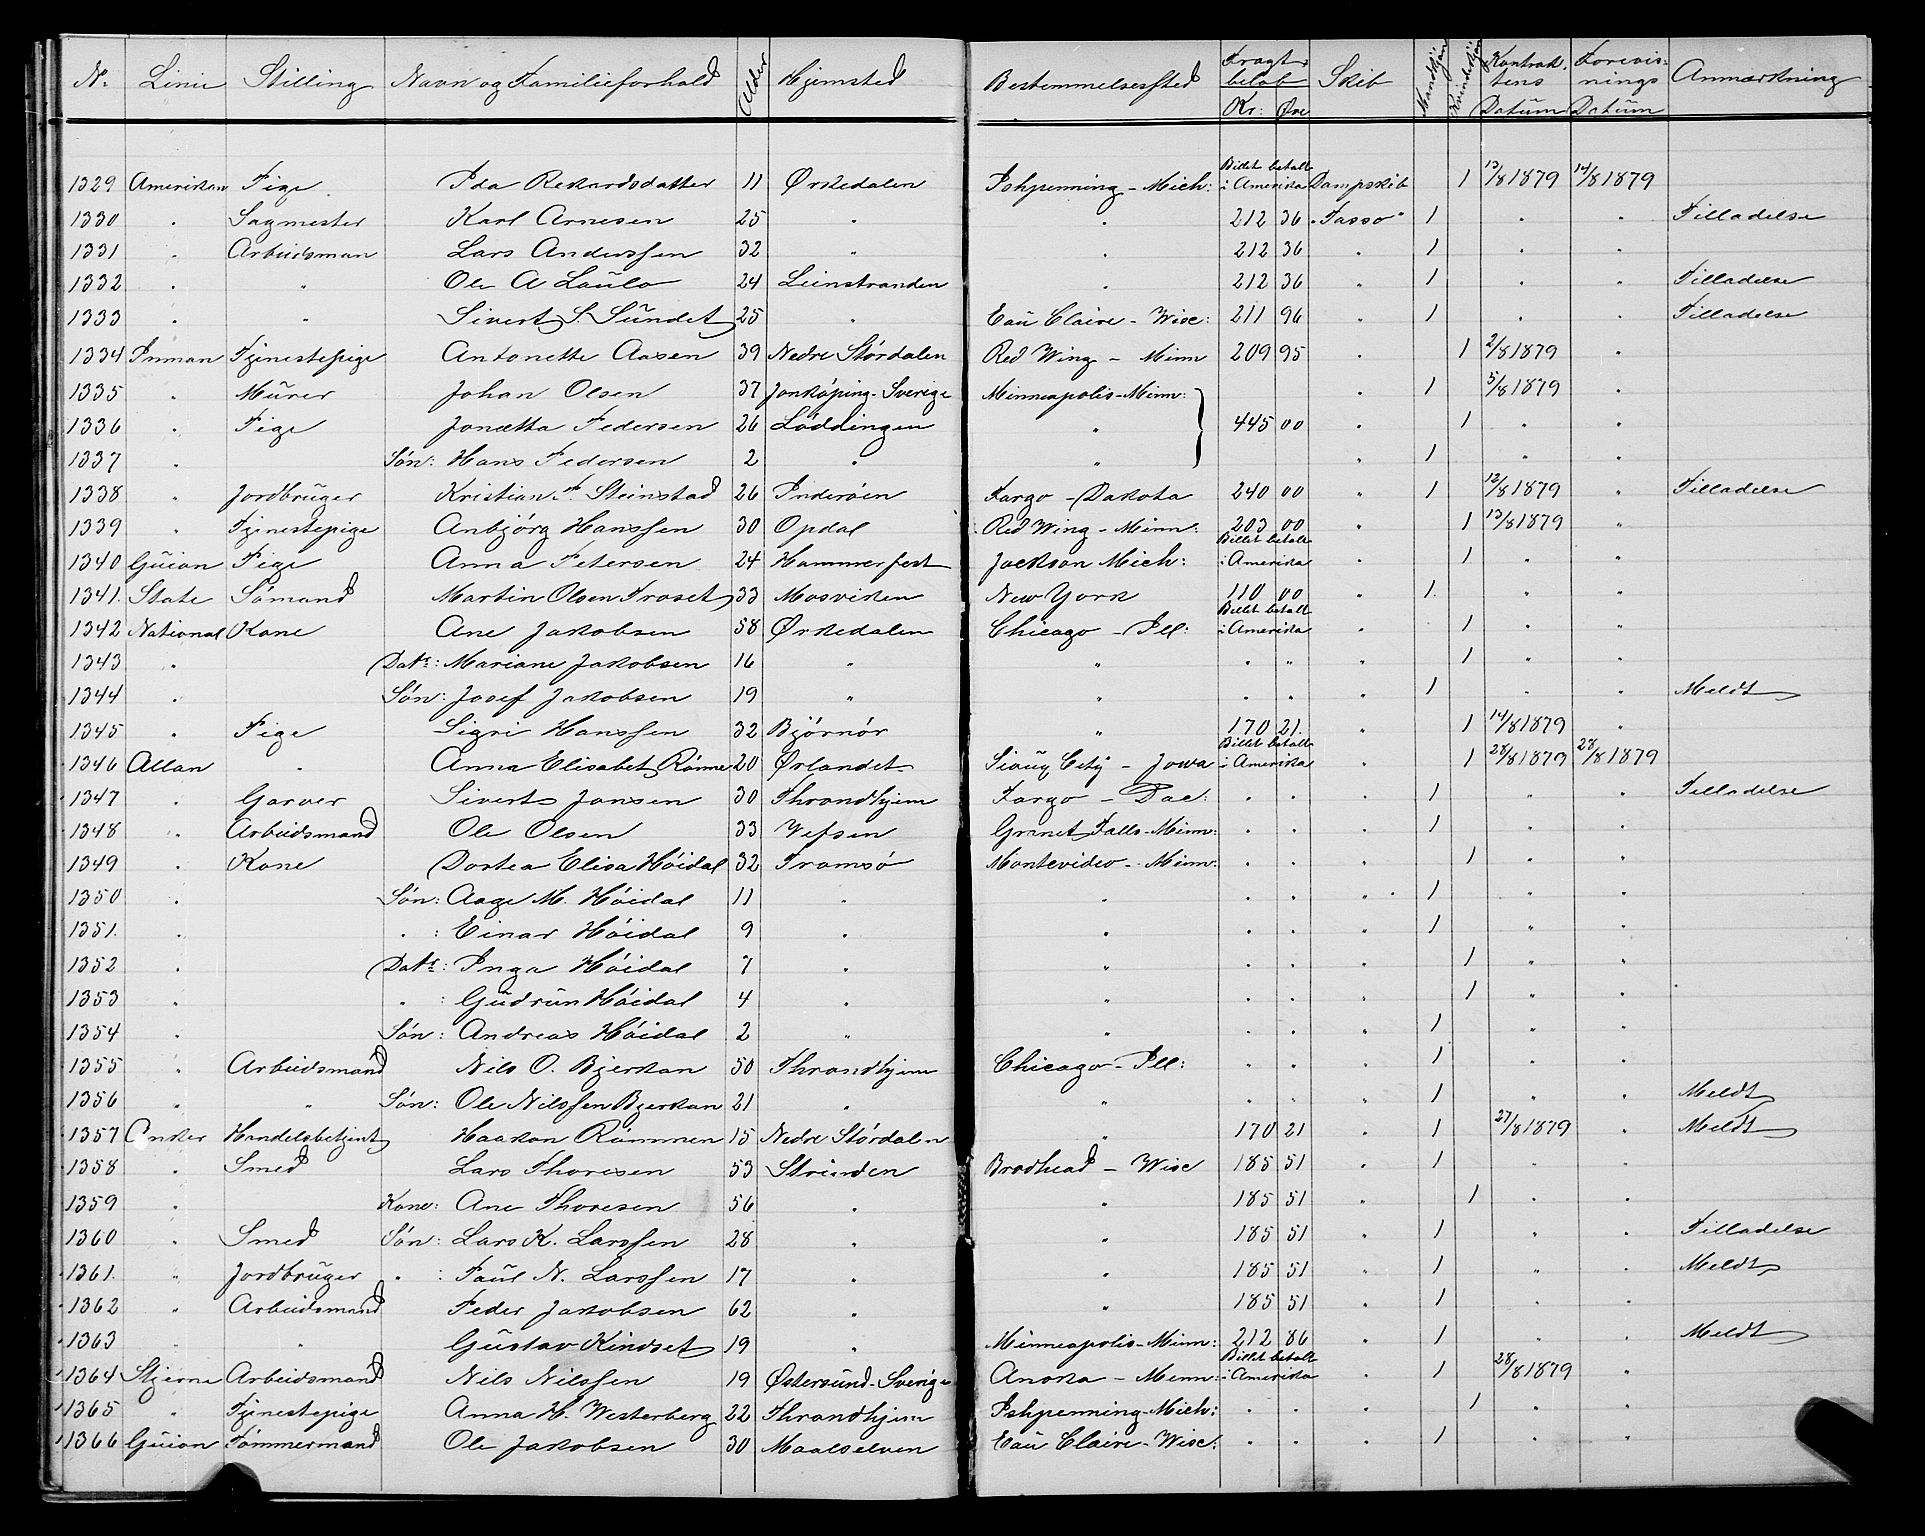 Nr. Linie Stilling Navn og Familieforhold Alder Hjemsted Bestemmelsessted Fragtbeløb Kr: Øre Skib Mandkjøn Kvindekjøn Kontraktens Datum Forevisnings Datum Anmærkning
1329 Amerikan Pige Ida Rekardsdatter 11 Ørkedalen Ishpenning - Mich: Billet betalt i Amerika Dampskib 1 13/8 1879 14/8 1879
1330 " Sagmester Karl Arnesen 25 " " 212 36 "Tasso" 1 " " Tilladelse
1331 " Arbeidsman Lars Anderssen 32 " " 212 36 " 1 " "
1332 " " Ole A Laulo 24 Leinstranden " 212 36 " 1 " " Tilladelse
1333 " " Sivert S. Sundet 25 " Eau Claire - Wisc: 211 96 " 1 " " Tilladelse
1334 Inman Tjenestepige Antonette Aasen 39 Nedre Stördalen Red Wing - Minn 209 95 " 1 2/8 1879 "
1335 " Murer Johan Olsen 37 Jonköping - Sverige Minneapolis - Minn: " 1 5/8 1879 "
1336 " Pige Jonetta Pedersen 26 Löddingen " 445 00 " 1 " "
1337 " Sön: Hans Pedersen 2 " " " 1 " "
1338 " Jordbruger Kristian P. Steinstad 26 Inderöen Fargo - Dakota 240 00 " 1 12/8 1879 " Tilladelse
1339 " Tjenestepige Anbjörg Hanssen 30 Opdal Red Wing - Minn: 203 00 " 1 13/8 1879 "
1340 Guion Pige Anna Petersen 24 Hammerfest Jackson Mich: Billet betalt i Amerika " 1 " "
1341. State Sömand Martin Olsen Troset 33 Mosviken New York 110 00 " 1. " "
1342 National Kone Ane Jakobsen 58 Ørkedalen Chicago - Ill: Billet betalt i Amerika " 1 " "
1343 " Datr: Mariane Jakobsen 16 " " " " " 1 " "
1344 " Sön: Josef Jakobsen 19 " " " " " 1 " " Meldt
1345 " Pige Sigri Hanssen 32 Björnör " 170 21. " 1 14/8 1879 "
1346 Allan " Anna Elisabet Rönne 20 Ørlandet Siouy City - Jowa Billet betalt i Amerika " 1 28/8 1879 28/8 1879
1347 " Garver Sivert Jansen 30 Throndhjem Fargo - Dac: " " " 1 " " Tilladelse
1348 " Arbeidsmand Ole Olsen 33 Vefsen Granet Falls - Minn: " " " 1 " "
1349 " Kone Dortea Elisa Höidal 32 Tromsö Montevideo - Minn: " " " 1 " "
1350 " Sön: Aage M. Höidal 11 " " " " " 1 " "
1351. " " : Einar Höidal 9 " " " " " 1 " "
1352 " Datr: Inga Höidal 7 " " " " " 1 " "
1353 " " : Gudrun Höidal 4 " " " " " 1 " "
1354 " Sön: Andreas Höidal 2 " " " " " 1 " "
1355 " Arbeidsmand Nils O. Bjerkan 50 Throndhjem Chicago - Ill: " " " 1 " "
1356 " " Sön: Ole Nilssen Bjerkan 21 " " " " " 1 " " Meldt
1357 Anker Handelsbetjent Haakon Römmen 15 Nedre Stördalen " 170 21 " 1 27/8 1879 " Meldt
1358 " Smed Lars Thoresen 53 Strinden Brodhead - Wisc 185 51 " 1 " "
1359 " Kone: Ane Thoresen 56 " " 185 51 " 1 " "
1360 " Smed Sön: Lars K. Larssen 28 " " 185 51 " 1 " " Tilladelse
1361. " Jordbruger " : Paul N. Larssen 17 " " 185 51 " 1 " " Meldt
1362 " Arbeidsmand Peder Jakobsen 62 " " 185 51 " 1 " "
1363 " " Gustav Kindset 19 " Minneapolis - Minn: 212 86 " 1 " " Meldt
1364 Stjerne Arbeidsmand Nils Nilssen 19 Østersund - Sverige Anoka - Minn: Billet betalt i Amerika " 1 28/8 1879 "
1365 " Tjenestepige Anna H. Westerberg 22 Throndhjem Ishpenning - Mich: " " " 1 " "
1366 Guion Tömmermand Ole Jakobsen 30 Maalselven Eau Claire - Wisc: " " " 1 " "